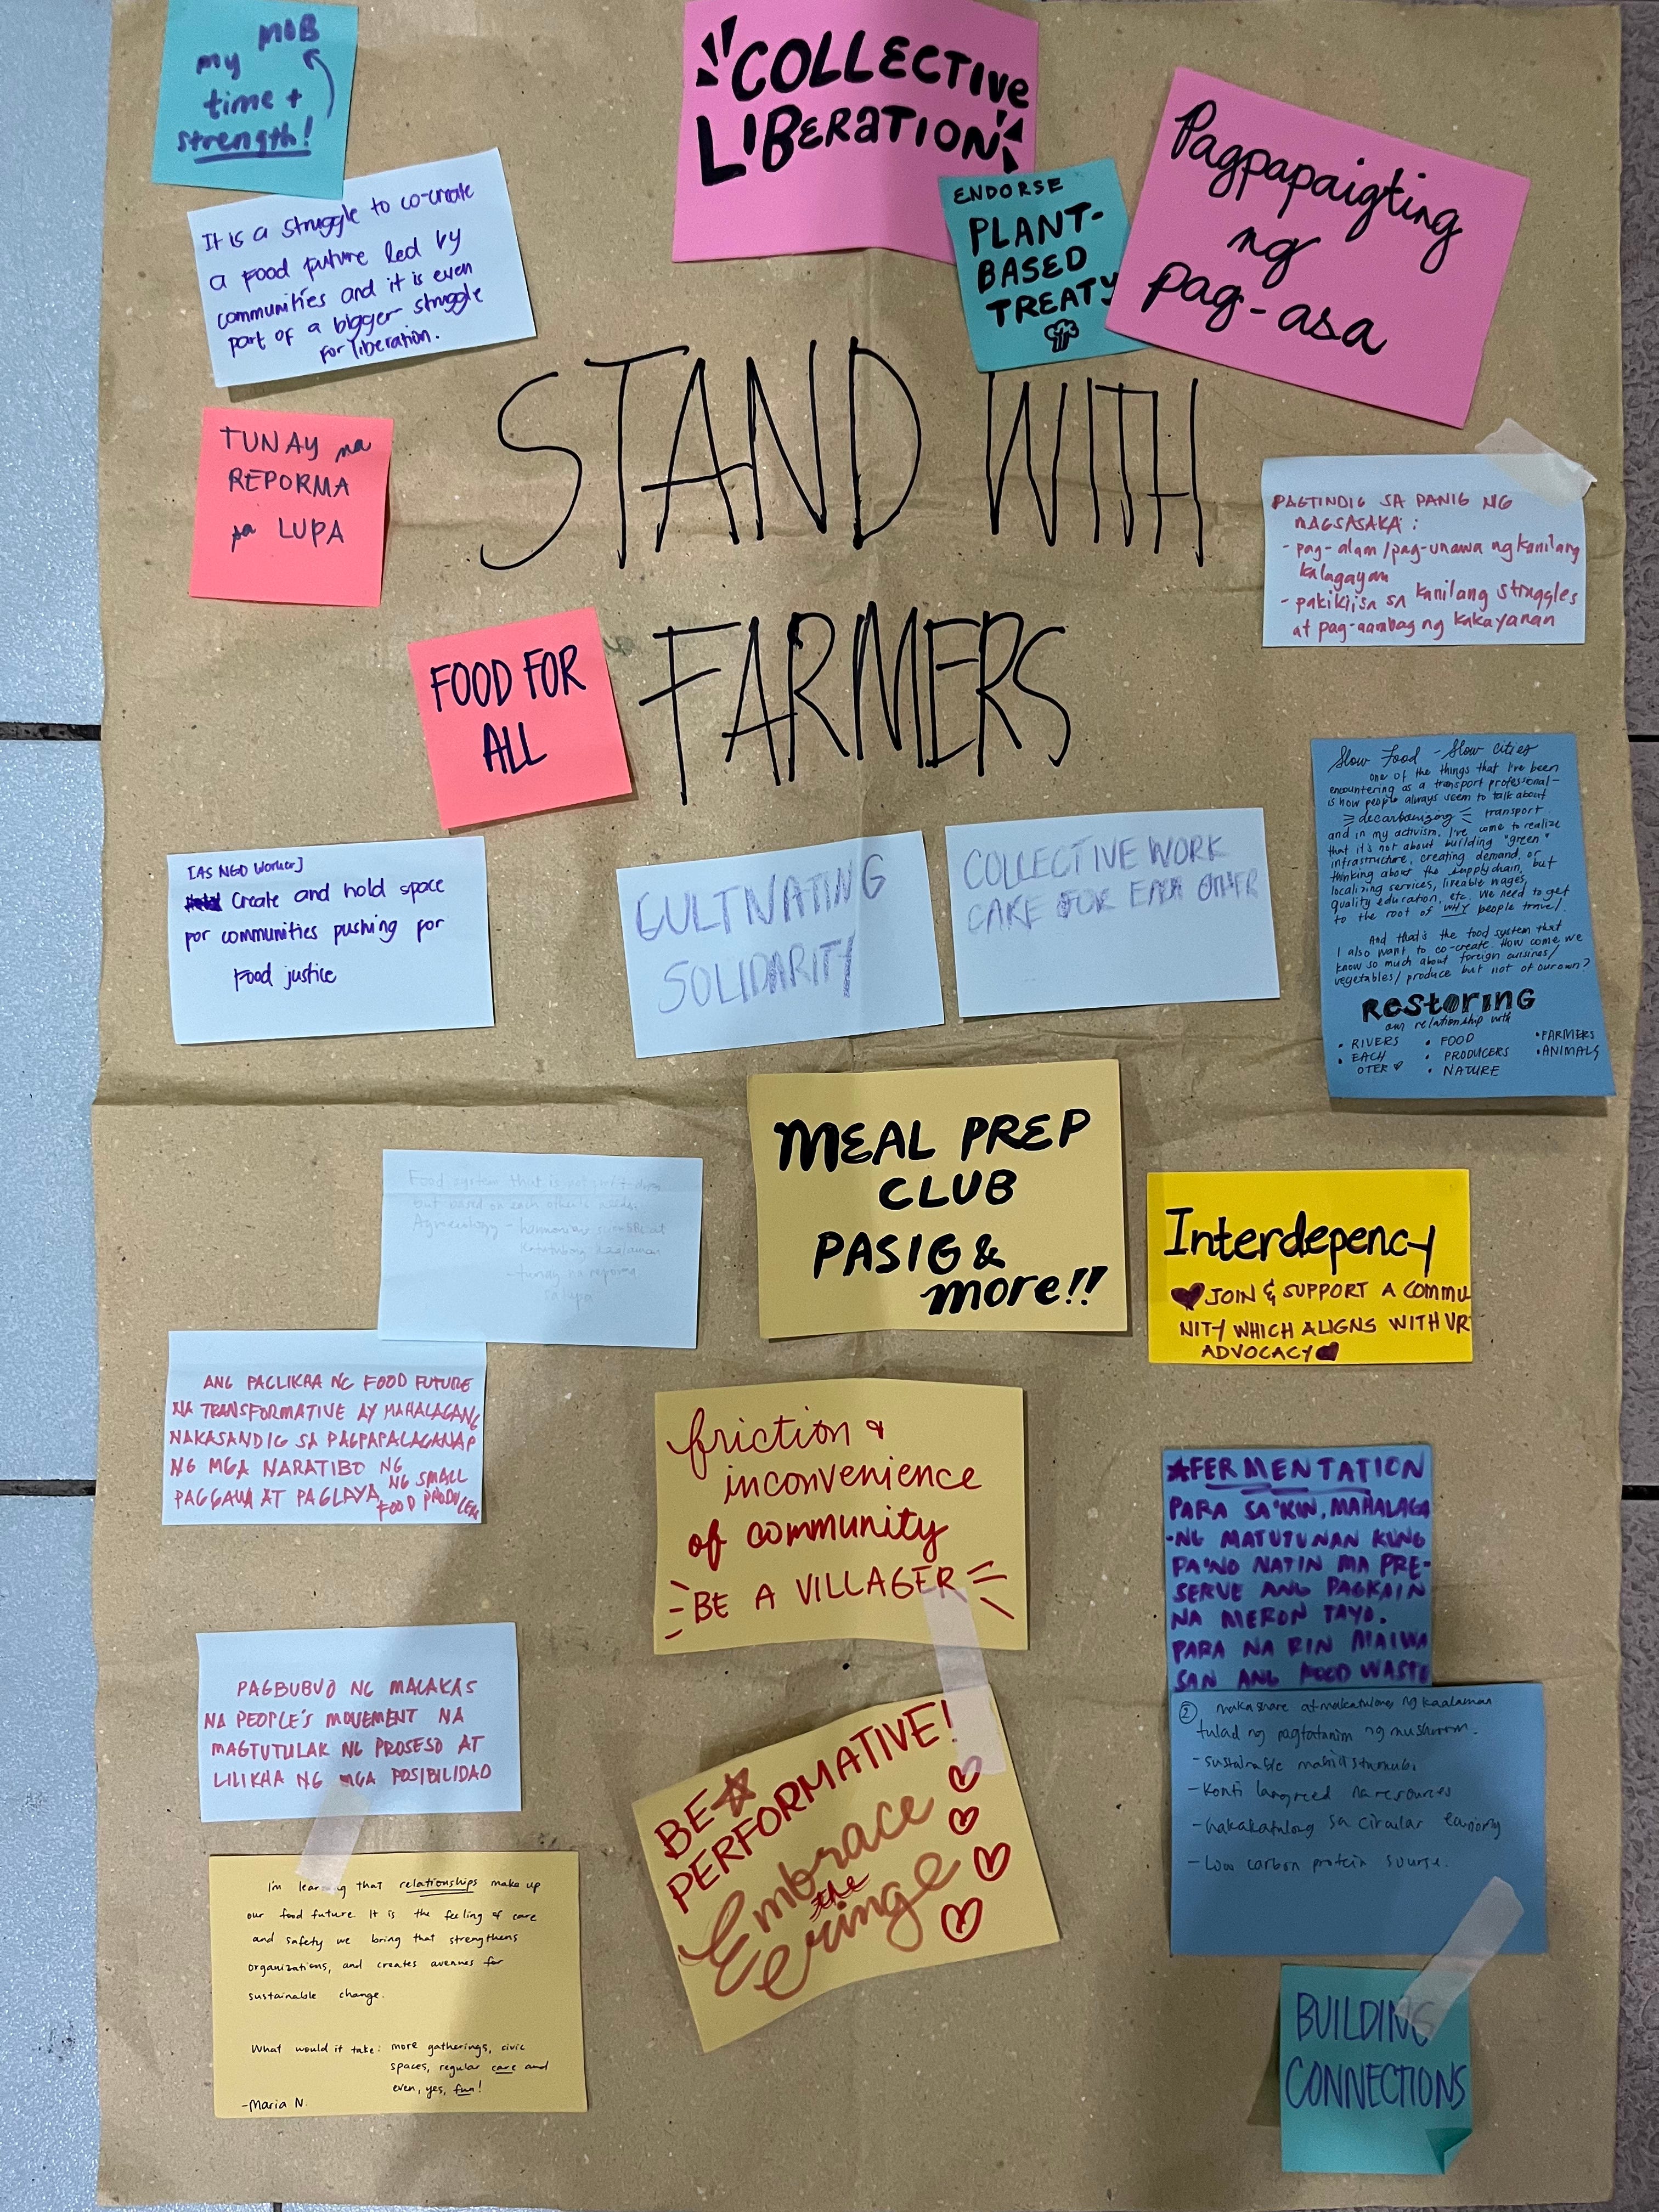 my MOB
time +
strength!
"COLLECTIVE
LIBERATION"
ENDORSE
PLANT-
BASED
TREATY
Pagpapaigting
ng
pag-asa
It is a struggle to co-create
a food future led by
communities and it is even
part of a bigger struggle
for liberation.
STAND WITH
FARMERS
TUNAY na
REPORMA
sa LUPA
FOOD FOR
ALL
PAGTINDIG SA PANIG NG
MAGSASAKA:
- pag-alam/pag-unawa ng kanilang
kalagayan
- pakikiisa sa kanilang struggles
at pag-aambag ng kakayanan
Slow Food - Slow Cities
one of the things that I've been
encountering as a transport professional-
is how people always seem to talk about
decarbonizing transport
and in my activism, I've come to realize
that it's not about building "green"
infrastructure, creating demand, or
thinking about the supply chain, but
localizing services, liveable wages,
quality education, etc. We need to get
to the root of WHY people travel.
And that's the food system that
I also want to co-create. How come we
know so much about foreign cuisines/
vegetables/produce but not of our own?
RESTORING
our relationship with
• RIVERS
• EACH
OTER
• FOOD
• PRODUCERS
• NATURE
• FARMERS
• ANIMALS
[AS NGO Worker]
Create and hold space
for communities pushing for
food justice
CULTIVATING
SOLIDARITY
COLLECTIVE WORK
CARE FOR EACH OTHER
MEAL PREP
CLUB
PASIG &
more!!
Food system that is not profit-driven
but based on each other's needs.
Agroecology -
- tunay na reporma
sa lupa
Interdepency
JOIN & SUPPORT A COMMU
NITY WHICH ALIGNS WITH UR
ADVOCACY
ANG PAGLIKHA NG FOOD FUTURE
NA TRANSFORMATIVE AY MAHALAGANG
NAKASANDIG SA PAGPAPALAGANAP
NG MGA NARATIBO NG
PAGGAWA AT PAGLAYA NG SMALL
FOOD PRODUCERS
friction &
inconvenience
of community
BE A VILLAGER
★FERMENTATION
PARA SA'KIN, MAHALAGA
-NG MATUTUNAN KUNG
PA'NO NATIN MA PRE-
SERVE ANG PAGKAIN
NA MERON TAYO.
PARA NA RIN MAIWA
SAN ANG FOOD WASTE
PAGBUBUO NG MALAKAS
NA PEOPLE'S MOVEMENT NA
MAGTUTULAK NG PROSESO AT
LILIKHA NG MGA POSIBILIDAD
BE
PERFORMATIVE!
Embrace
the
cringe
② makashare at makatulong ng kaalaman
tulad ng pagtatanim ng mushroom.
- sustainable
- Konti lang need na resources
- nakakatulong sa circular economy
- Low carbon protein source.
I'm learning that relationships make up
our food future. It is the feeling of care
and safety we bring that strengthens
organizations, and creates avenues for
sustainable change.
What would it take: more gatherings, civic
spaces, regular care and
even, yes, fun!
-Maria N.
BUILDING
CONNECTIONS